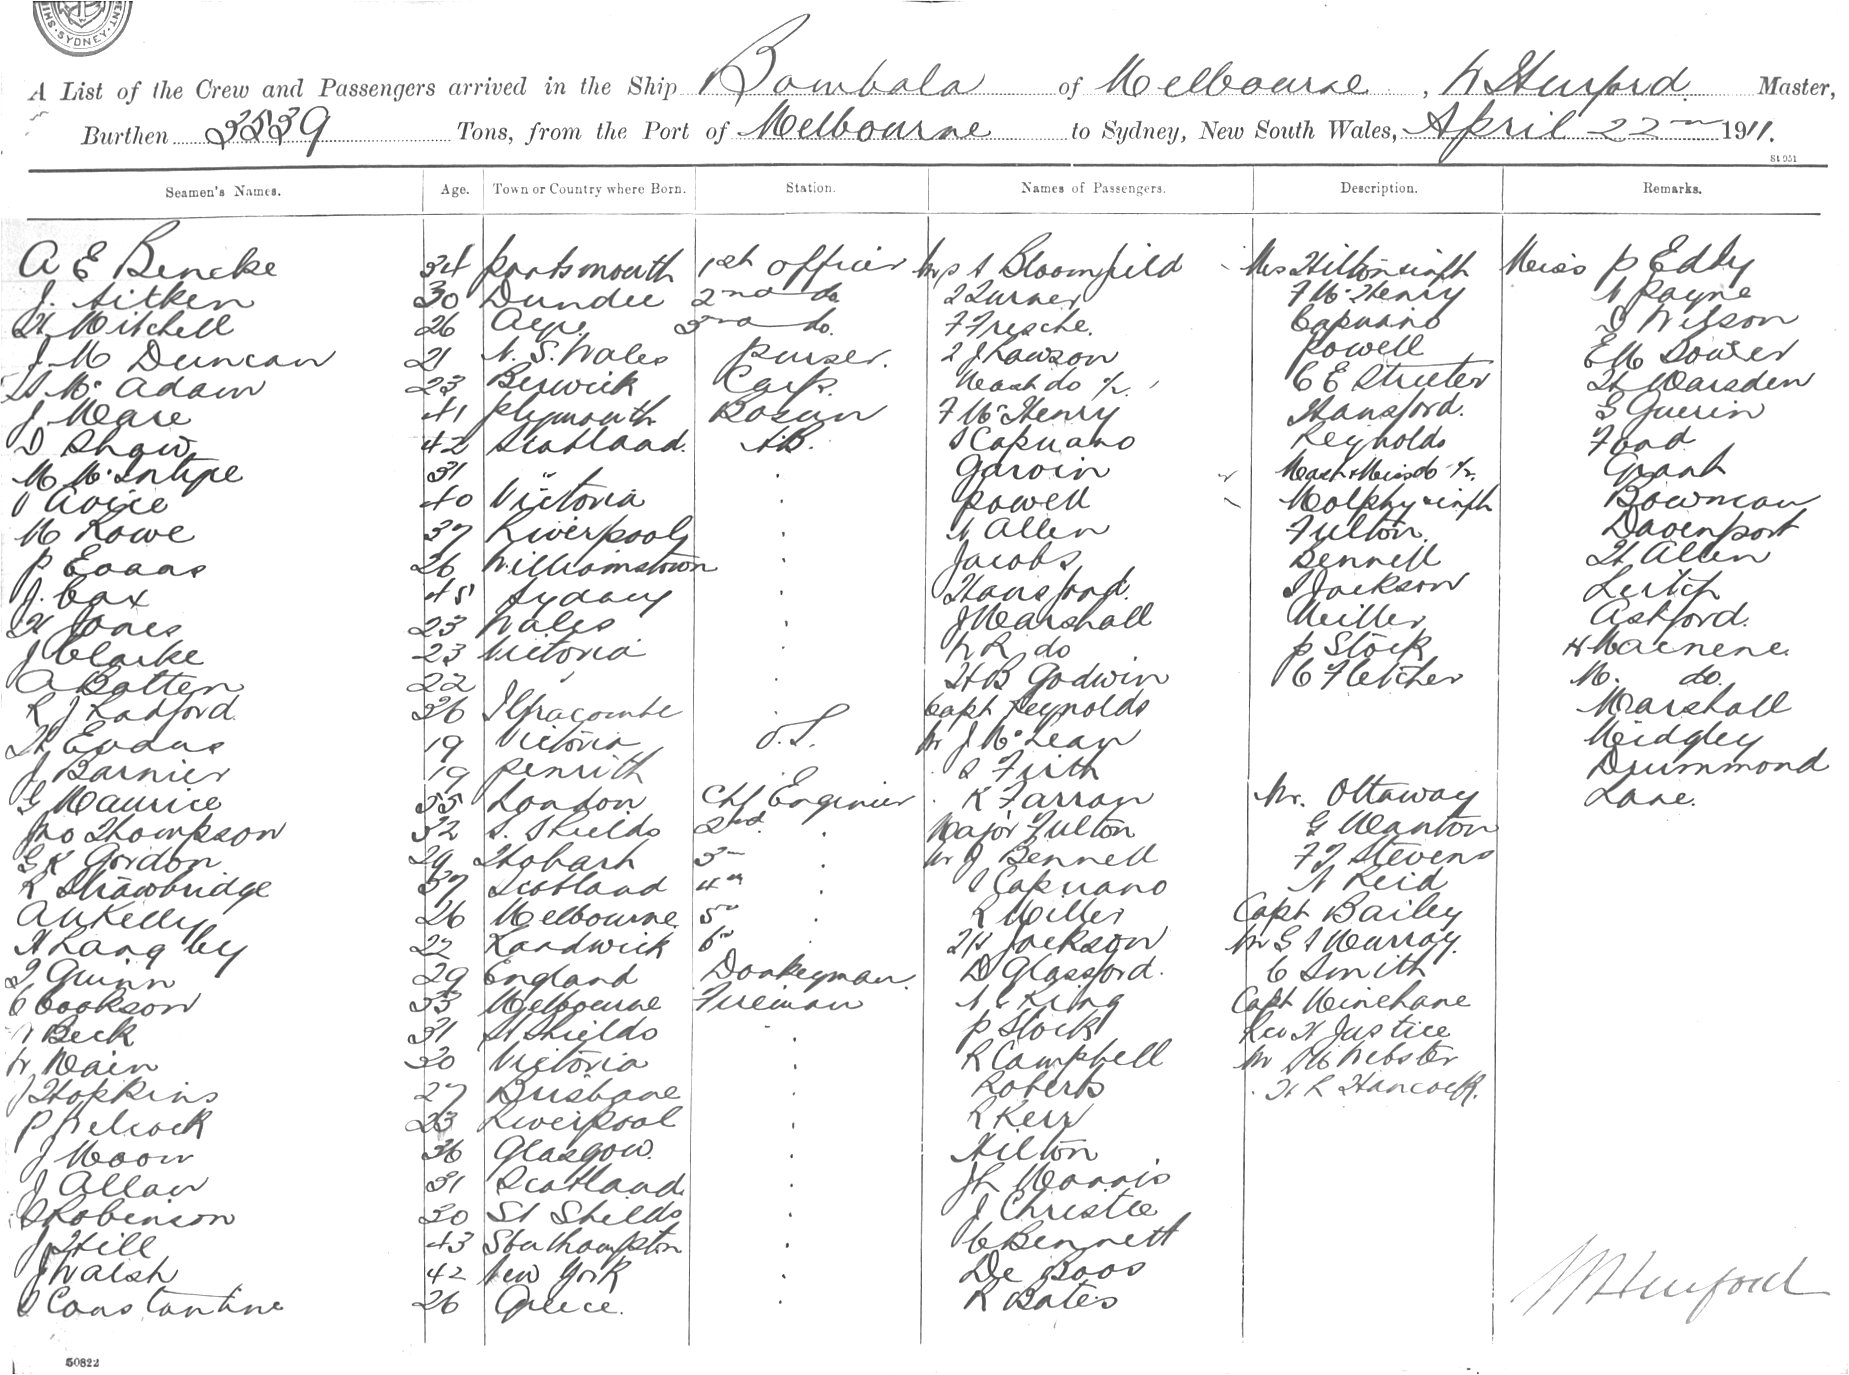 MENT · SYDNEY · SHI
A List of the Crew and Passengers arrived in the Ship Bombala of Melbourne, W Hurford Master,
Burthen 3539 Tons, from the Port of Melbourne to Sydney, New South Wales, April 22nd 1911.
St 951
Seamen's Names. Age. Town or Country where Born. Station. Names of Passengers. Description. Remarks.
A E Bencke 34 Portsmouth 1st officer Mrs A Bloomfield Mrs Hilton & infh Miss P Eddy
J. Aitken 30 Dundee 2nd do Turner F McHenry Payne
H Mitchell 26 3rd do. F Fresche. Capuano Wilson
J M Duncan 21 N. S. Wales Purser. J Rawson Powell E M
H Mc Adam 23 Berwick Carp. Mast do C E Streeter H Marsden
J Meare 41 Plymouth Bosun F McHenry Hansford. G Guerin
D Shaw 42 Scotland. AB. Capuano Reynolds Ford
M McIntyre 31 " Garvin Mast & Miss do Grant
40 Victoria Powell Molphy & infh Bowman
M Rowe 37 Liverpool Allen Fulton. Davenport
P Evans 26 Williamstown Jacobs Bennett H Allen
J. Cox 45 Sydney Hansford. Jackson
H Jones 23 Wales J Marshall Miller Ashford.
J Clarke 23 Victoria W R do P Stock H
A Batten 22 " H B Godwin C Fletcher M. do.
R J Radford 36 Ilfracombe Capt Reynolds Marshall
H Evans 19 Victoria O.S. Mr J McLean Midgley
J Barnier 19 Penrith S Firth Drummond
G Maurice 55 London Chf Engineer K Farran Mr. Ottaway Lane.
Jno Thompson 32 S. Shields 2nd Major Fulton G Wanton
G K Gordon 29 Hobart 3rd Mr J Bennett F J Stevens
R Strawbridge 37 Scotland 4th Capuano Reid
A M Kelly 26 Melbourne 5th R Miller Capt Bailey
A Langley 22 Randwick 6th Jackson Mr G Murray.
J Quinn 29 England Donkeyman. D Glassford. C Smith
C Cookson 33 Melbourne Fireman King Capt Minehane
Beck 31 St Shields P Stock Rev H Justice
W Main 30 Victoria R Campbell Mr Webster
J Hopkins 27 Brisbane Roberts H R Hancock.
P Silcock 23 Liverpool R Kerr
J Moow 36 Glasgow. Hilton
J Allan 31 Scotland Morris
Robinson 30 St Shields J Christie
J Hill 43 Southampton C Bennett
J Walsh 42 New York De Boos
Constantine 26 Greece. R Bates
W Hurford
50822